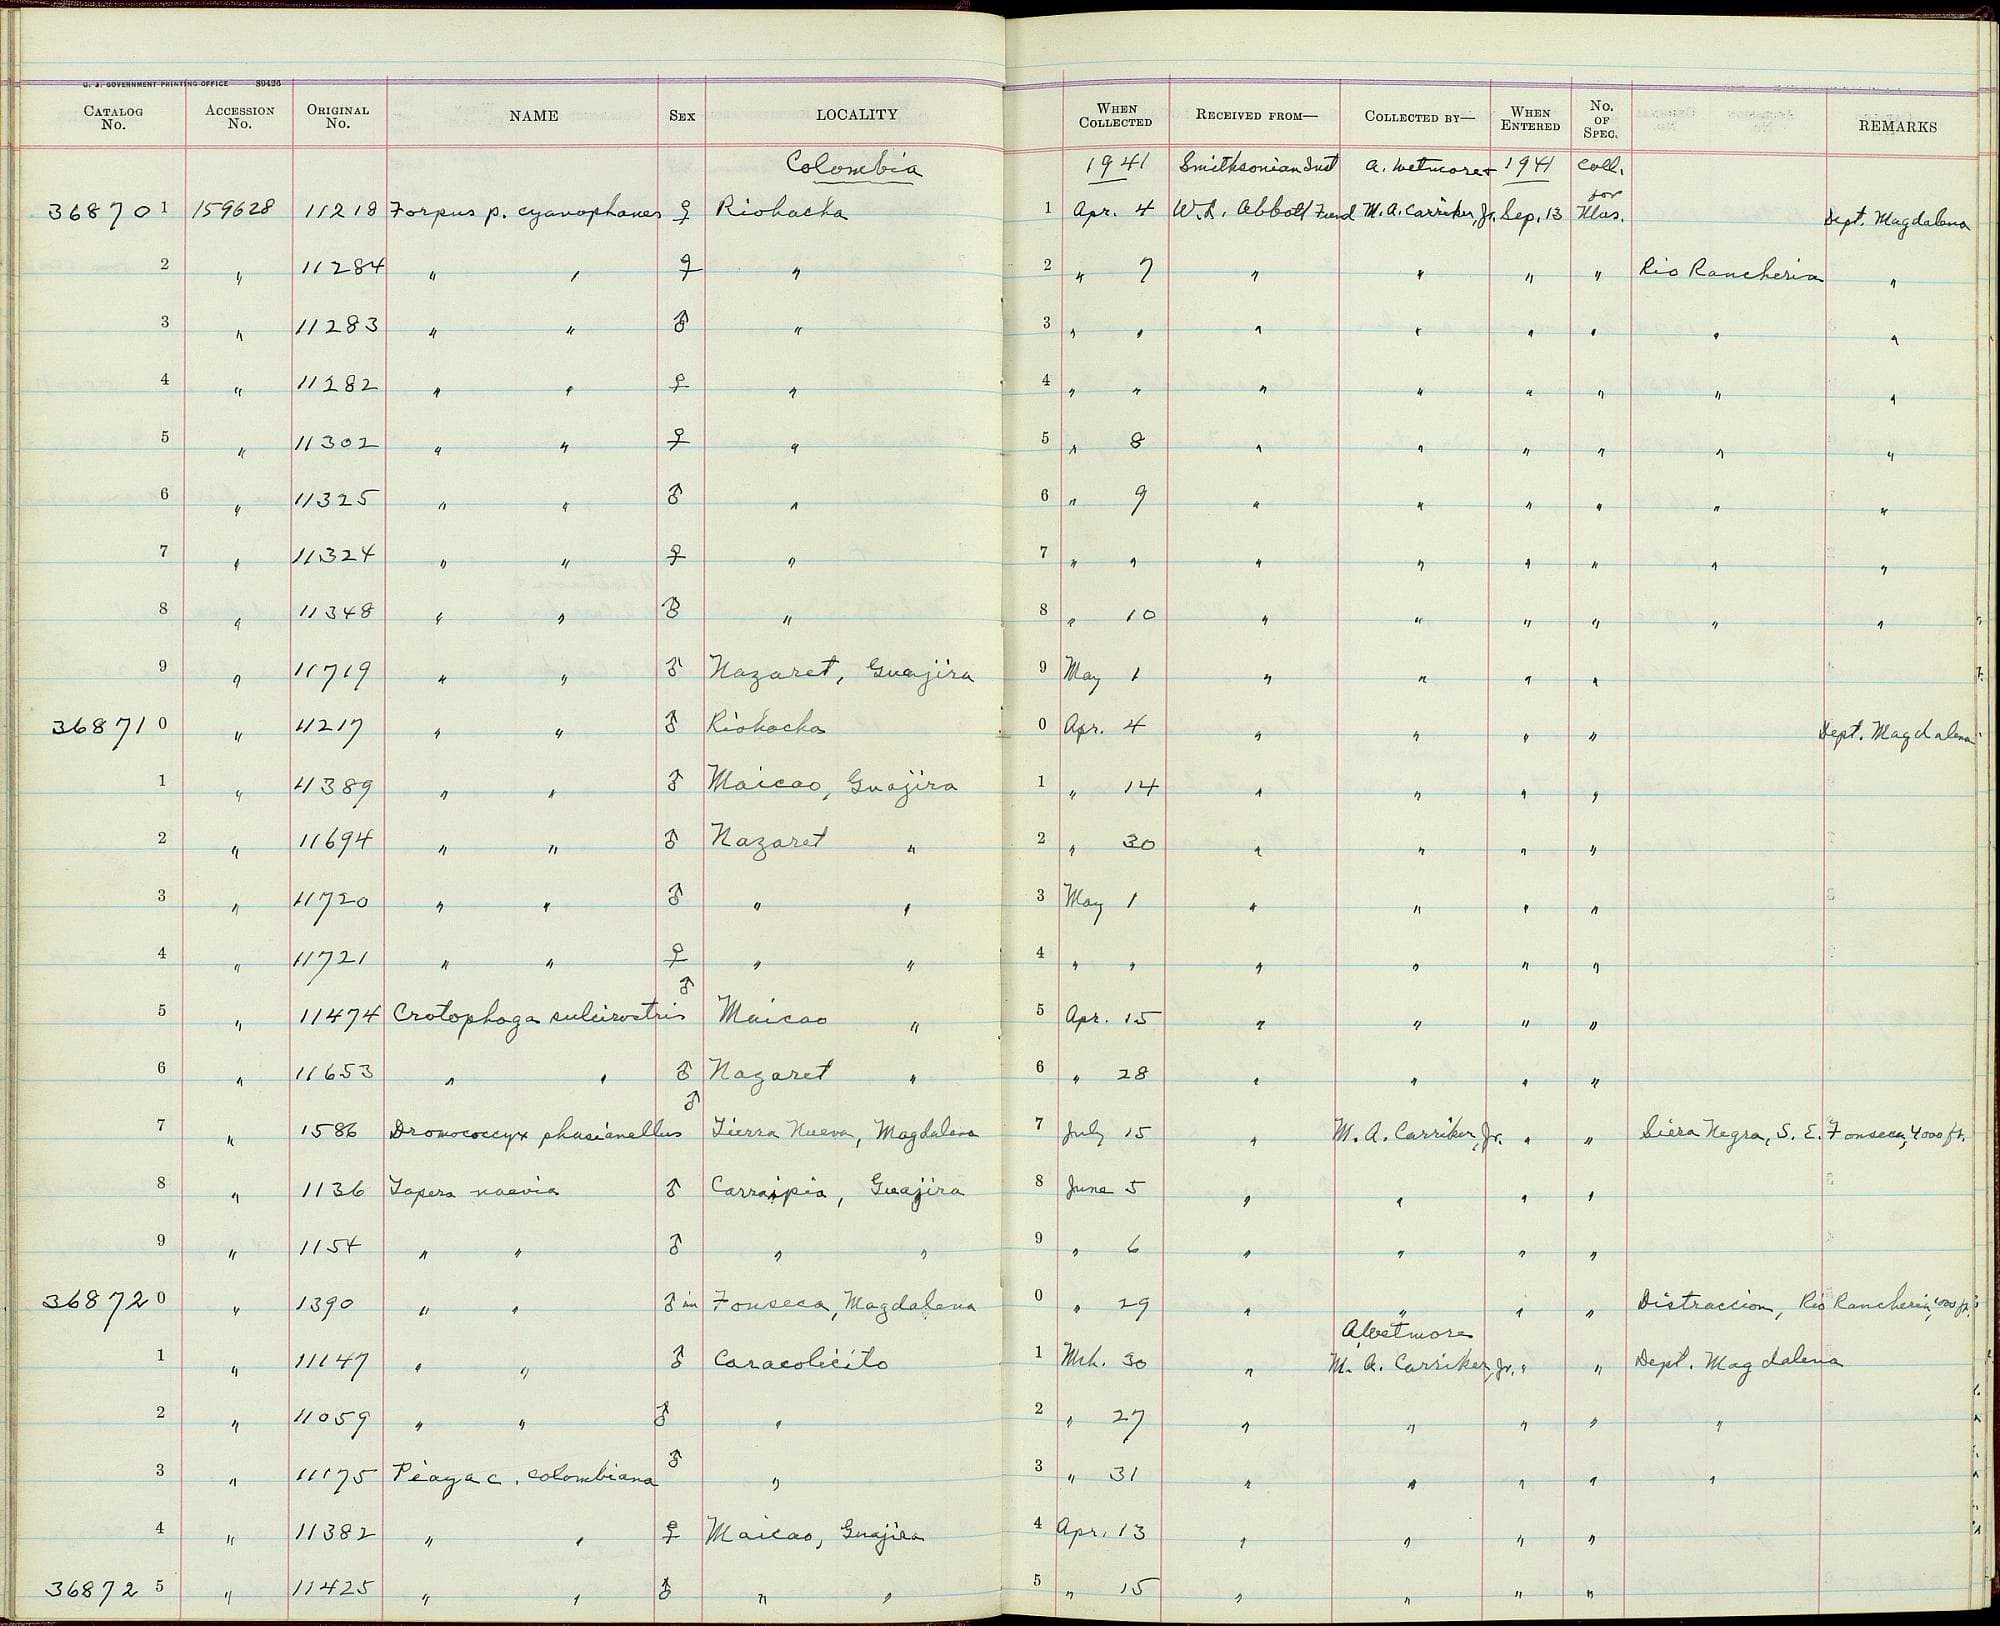 U. S. GOVERNMENT PRINTING OFFICE 89426
CATALOG No. ACCESSION No. ORIGINAL No. NAME SEX LOCALITY WHEN COLLECTED RECEIVED FROM— COLLECTED BY— WHEN ENTERED No. OF SPEC. REMARKS
Colombia 1941 Smithsonian Inst A. Wetmore + 1941 Coll. for
368701 159628 11218 Forpus p. cyanophanes ♀ Riohacha 1 Apr. 4 W. L. Abbott Fund M. A. Carriker, Jr. Sep. 13 Mus. Dept. Magdalena
2 " 11284 " " ♀ " 2 " 7 " " " " Rio Rancheria "
3 " 11283 " " ♂ " 3 " " " " " " " "
4 " 11282 " " ♀ " 4 " " " " " " " "
5 " 11302 " " ♀ " 5 " 8 " " " " " "
6 " 11325 " " ♂ " 6 " 9 " " " " " "
7 " 11324 " " ♀ " 7 " " " " " " " "
8 " 11348 " " ♂ " 8 " 10 " " " " " "
9 " 11719 " " ♂ Nazaret, Guajira 9 May 1 " " " "
368710 " 11217 " " ♂ Riohacha 0 Apr. 4 " " " " Dept. Magdalena
1 " 11389 " " ♂ Maicao, Guajira 1 " 14 " " " "
2 " 11694 " " ♂ Nazaret " 2 " 30 " " " "
3 " 11720 " " ♂ " " 3 May 1 " " " "
4 " 11721 " " ♀ " " 4 " " " " " "
5 " 11474 Crotophaga sulcirostris ♂ Maicao " 5 Apr. 15 " " " "
6 " 11653 " " ♂ Nazaret " 6 " 28 " " " "
7 " 1586 Dromococcyx phasianellus ♂ Tierra Nueva, Magdalena 7 July 15 " M. A. Carriker, Jr. " " Siera Negra, S. E. Fonseca, 4000 ft.
8 " 1136 Tapera naevia ♂ Carraipia, Guajira 8 June 5 " " " "
9 " 1154 " " ♂ " " 9 " 6 " " " "
368720 " 1390 " " ♂ im Fonseca, Magdalena 0 " 29 " " " " Distraccion, Rio Rancheria,
A Wetmore
1 " 11147 " " ♂ Caracolicito 1 Mch. 30 " M. A. Carriker, Jr. " " Dept. Magdalena
2 " 11059 " " ♂ " 2 " 27 " " " " "
3 " 11175 Piaya c. colombiana ♂ " 3 " 31 " " " " "
4 " 11382 " " ♀ Maicao, Guajira 4 Apr. 13 " " " "
368725 " 11425 " " ♂ " " 5 " 15 " " " "